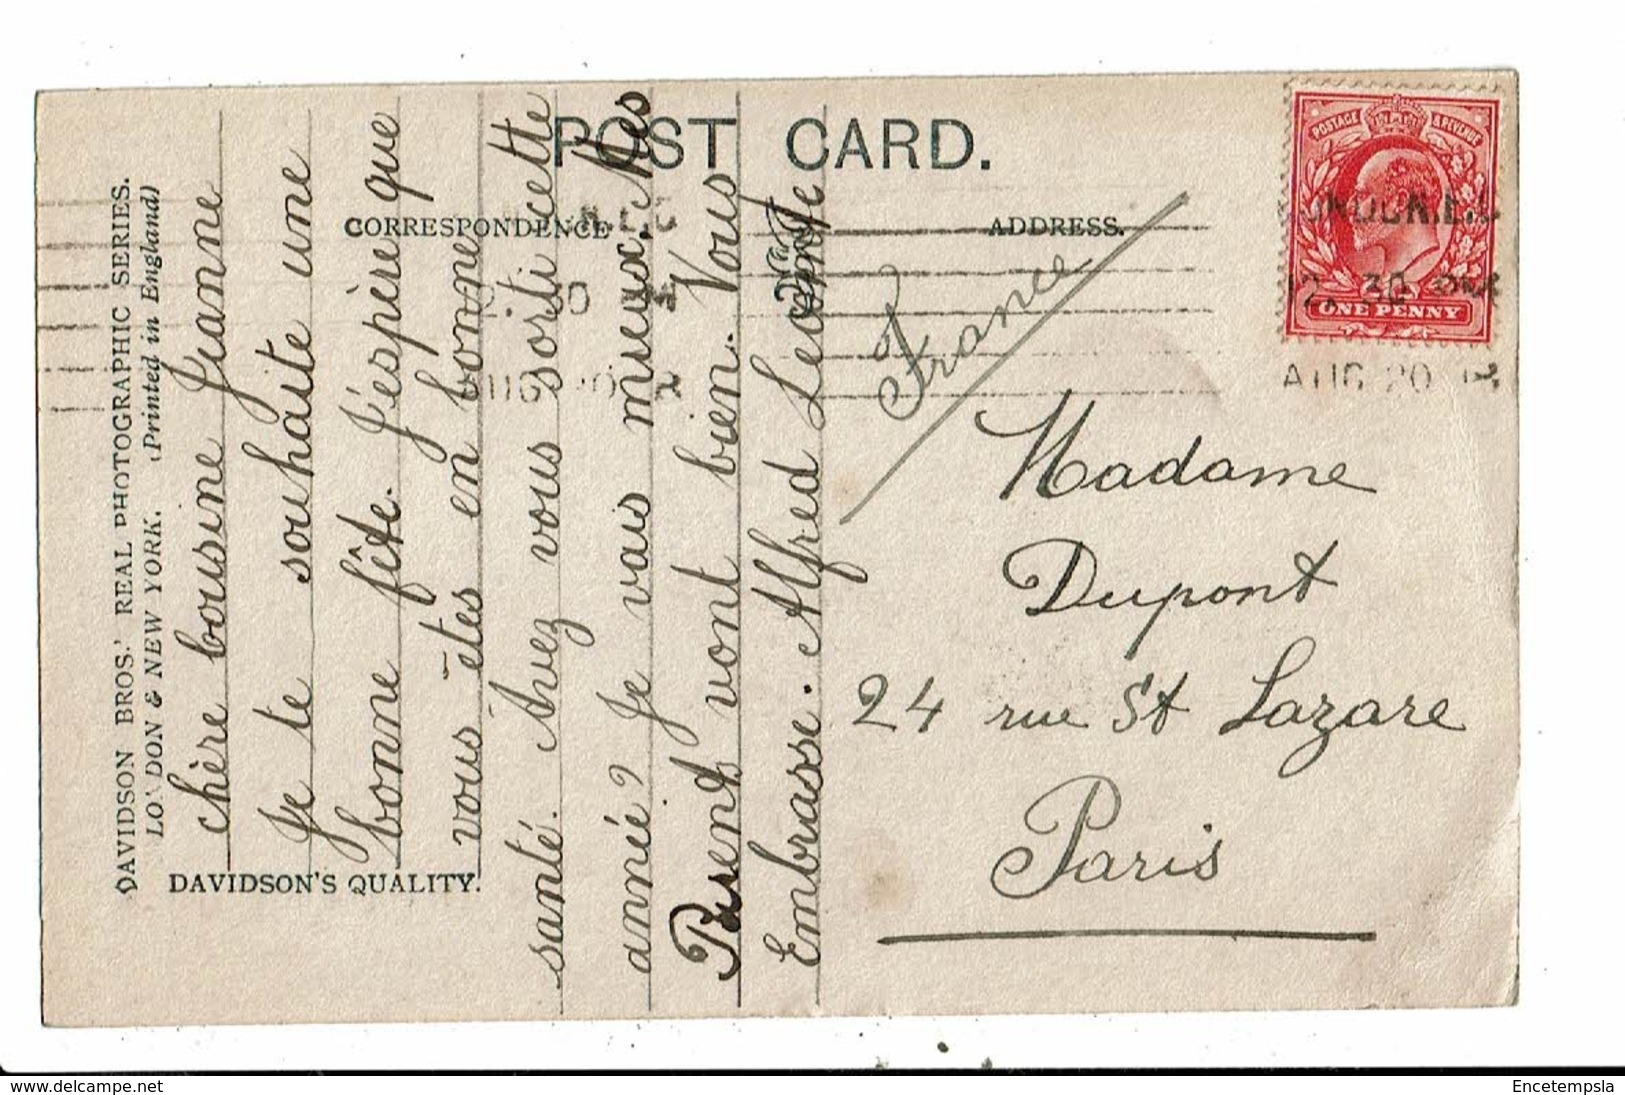 POST CARD.
CORRESPONDENCE
ADDRESS.
DAVIDSON BROS.' REAL PHOTOGRAPHIC SERIES.
LONDON & NEW YORK. (Printed in England)
DAVIDSON'S QUALITY.
chère cousine Jeanne
Je te souhaite une
bonne fête. J'espère que
vous êtes en bonne
santé. Avez vous sorti cette
année? Je vais mieux. Mes
Parents vont bien. Vous
Embrasse. Alfred
POSTAGE & REVENUE
ONE PENNY
12. 30 PM
AUG 20 12
France
Madame
Dupont
24 rue St Lazare
Paris
www.delcampe.net
Encetempsla